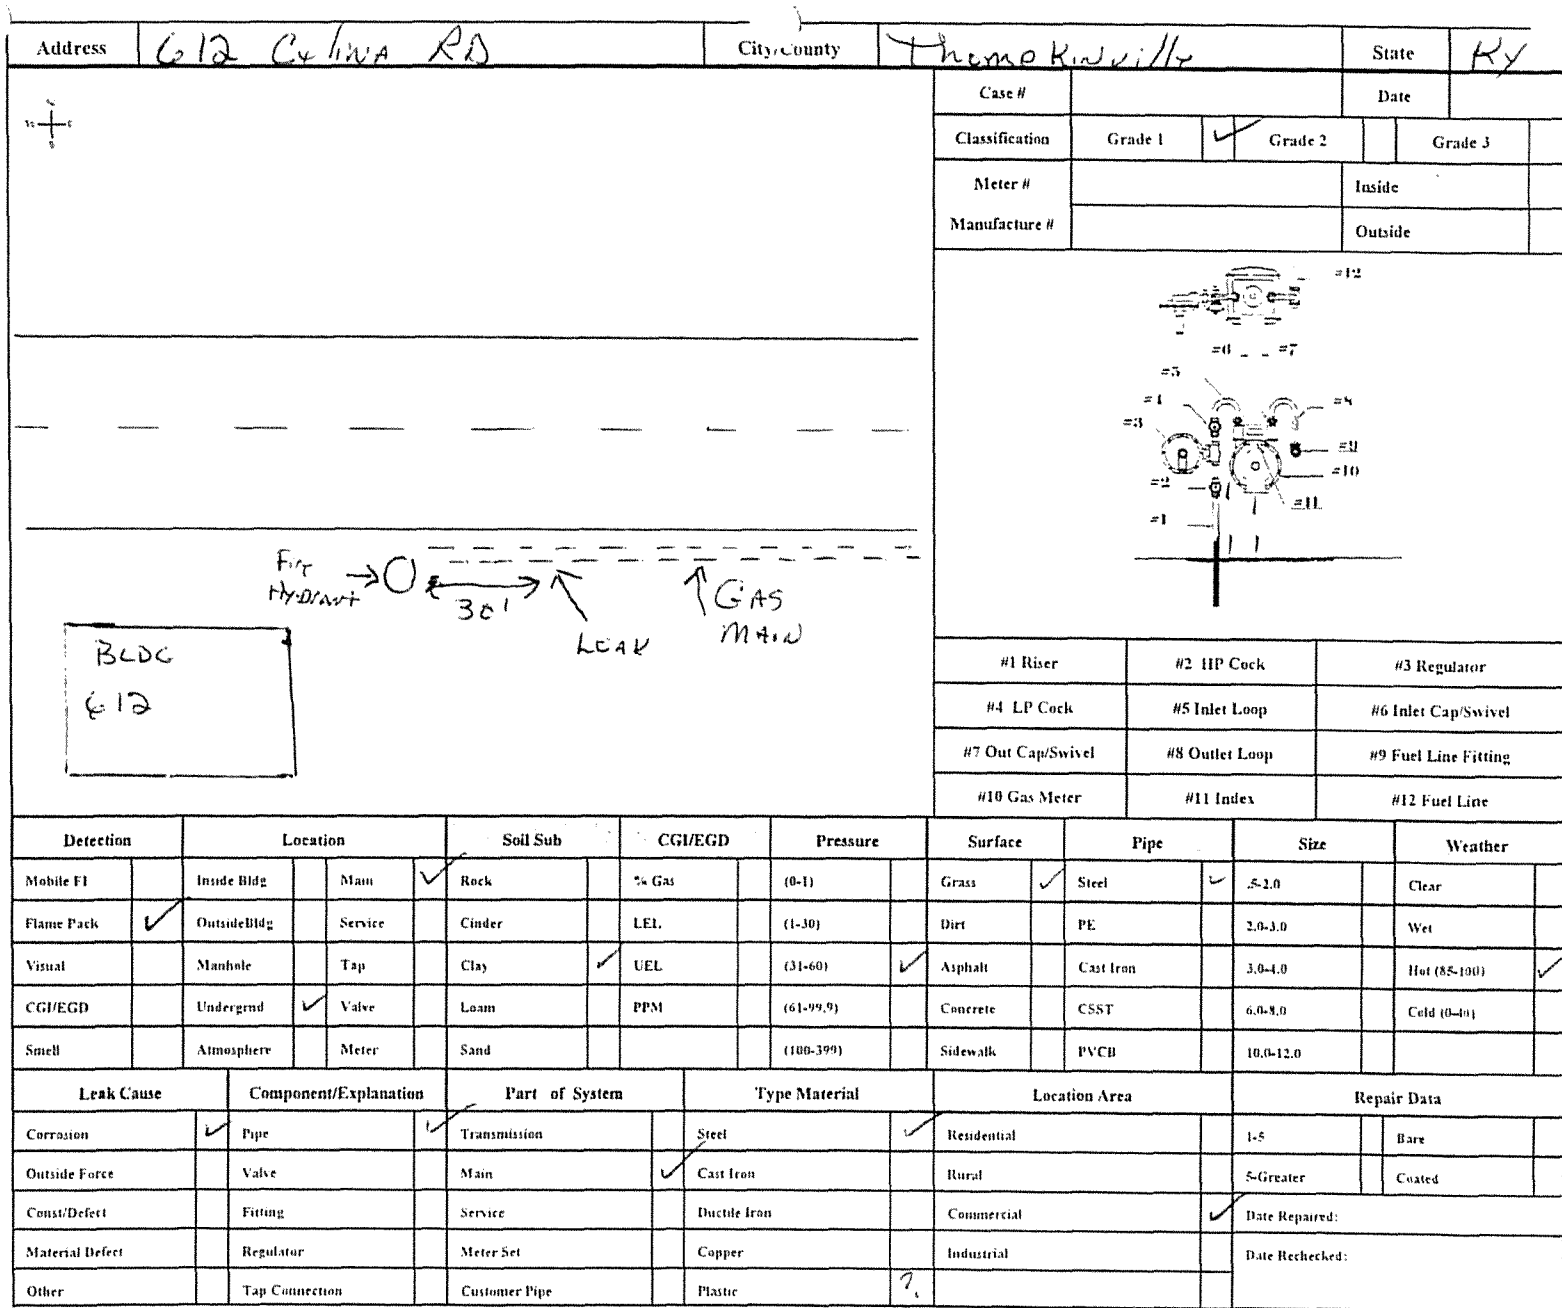 Address 612 Cylina RD City/County Thompkinville State KY
Case # Date
Classification Grade 1 ✓ Grade 2 Grade 3
Meter # Inside
Manufacture # Outside
#12
#6 #7
#5
#4 #8
#3
#9
#2 #10
#11
#1
Fire
Hydrant
30'
LEAK
GAS
MAIN
BLDG
612
#1 Riser #2 HP Cock #3 Regulator
#4 LP Cock #5 Inlet Loop #6 Inlet Cap/Swivel
#7 Out Cap/Swivel #8 Outlet Loop #9 Fuel Line Fitting
#10 Gas Meter #11 Index #12 Fuel Line
Detection Location Soil Sub CGI/EGD Pressure Surface Pipe Size Weather
Mobile FI Inside Bldg Main ✓ Rock % Gas (0-1) Grass ✓ Steel ✓ .5-2.0 Clear
Flame Pack ✓ OutsideBldg Service Cinder LEL (1-30) Dirt PE 2.0-3.0 Wet
Visual Manhole Tap Clay ✓ UEL (31-60) ✓ Asphalt Cast Iron 3.0-4.0 Hot (85-100) ✓
CGI/EGD Undergrnd ✓ Valve Loam PPM (61-99.9) Concrete CSST 6.0-8.0 Cold (0-40)
Smell Atmosphere Meter Sand (100-399) Sidewalk PVCB 10.0-12.0
Leak Cause Component/Explanation Part of System Type Material Location Area Repair Data
Corrosion ✓ Pipe ✓ Transmission Steel ✓ Residential 1-5 Bare
Outside Force Valve Main ✓ Cast Iron Rural 5-Greater Coated
Const/Defect Fitting Service Ductile Iron Commercial ✓ Date Repaired:
Material Defect Regulator Meter Set Copper Industrial Date Rechecked:
Other Tap Connection Customer Pipe Plastic ?